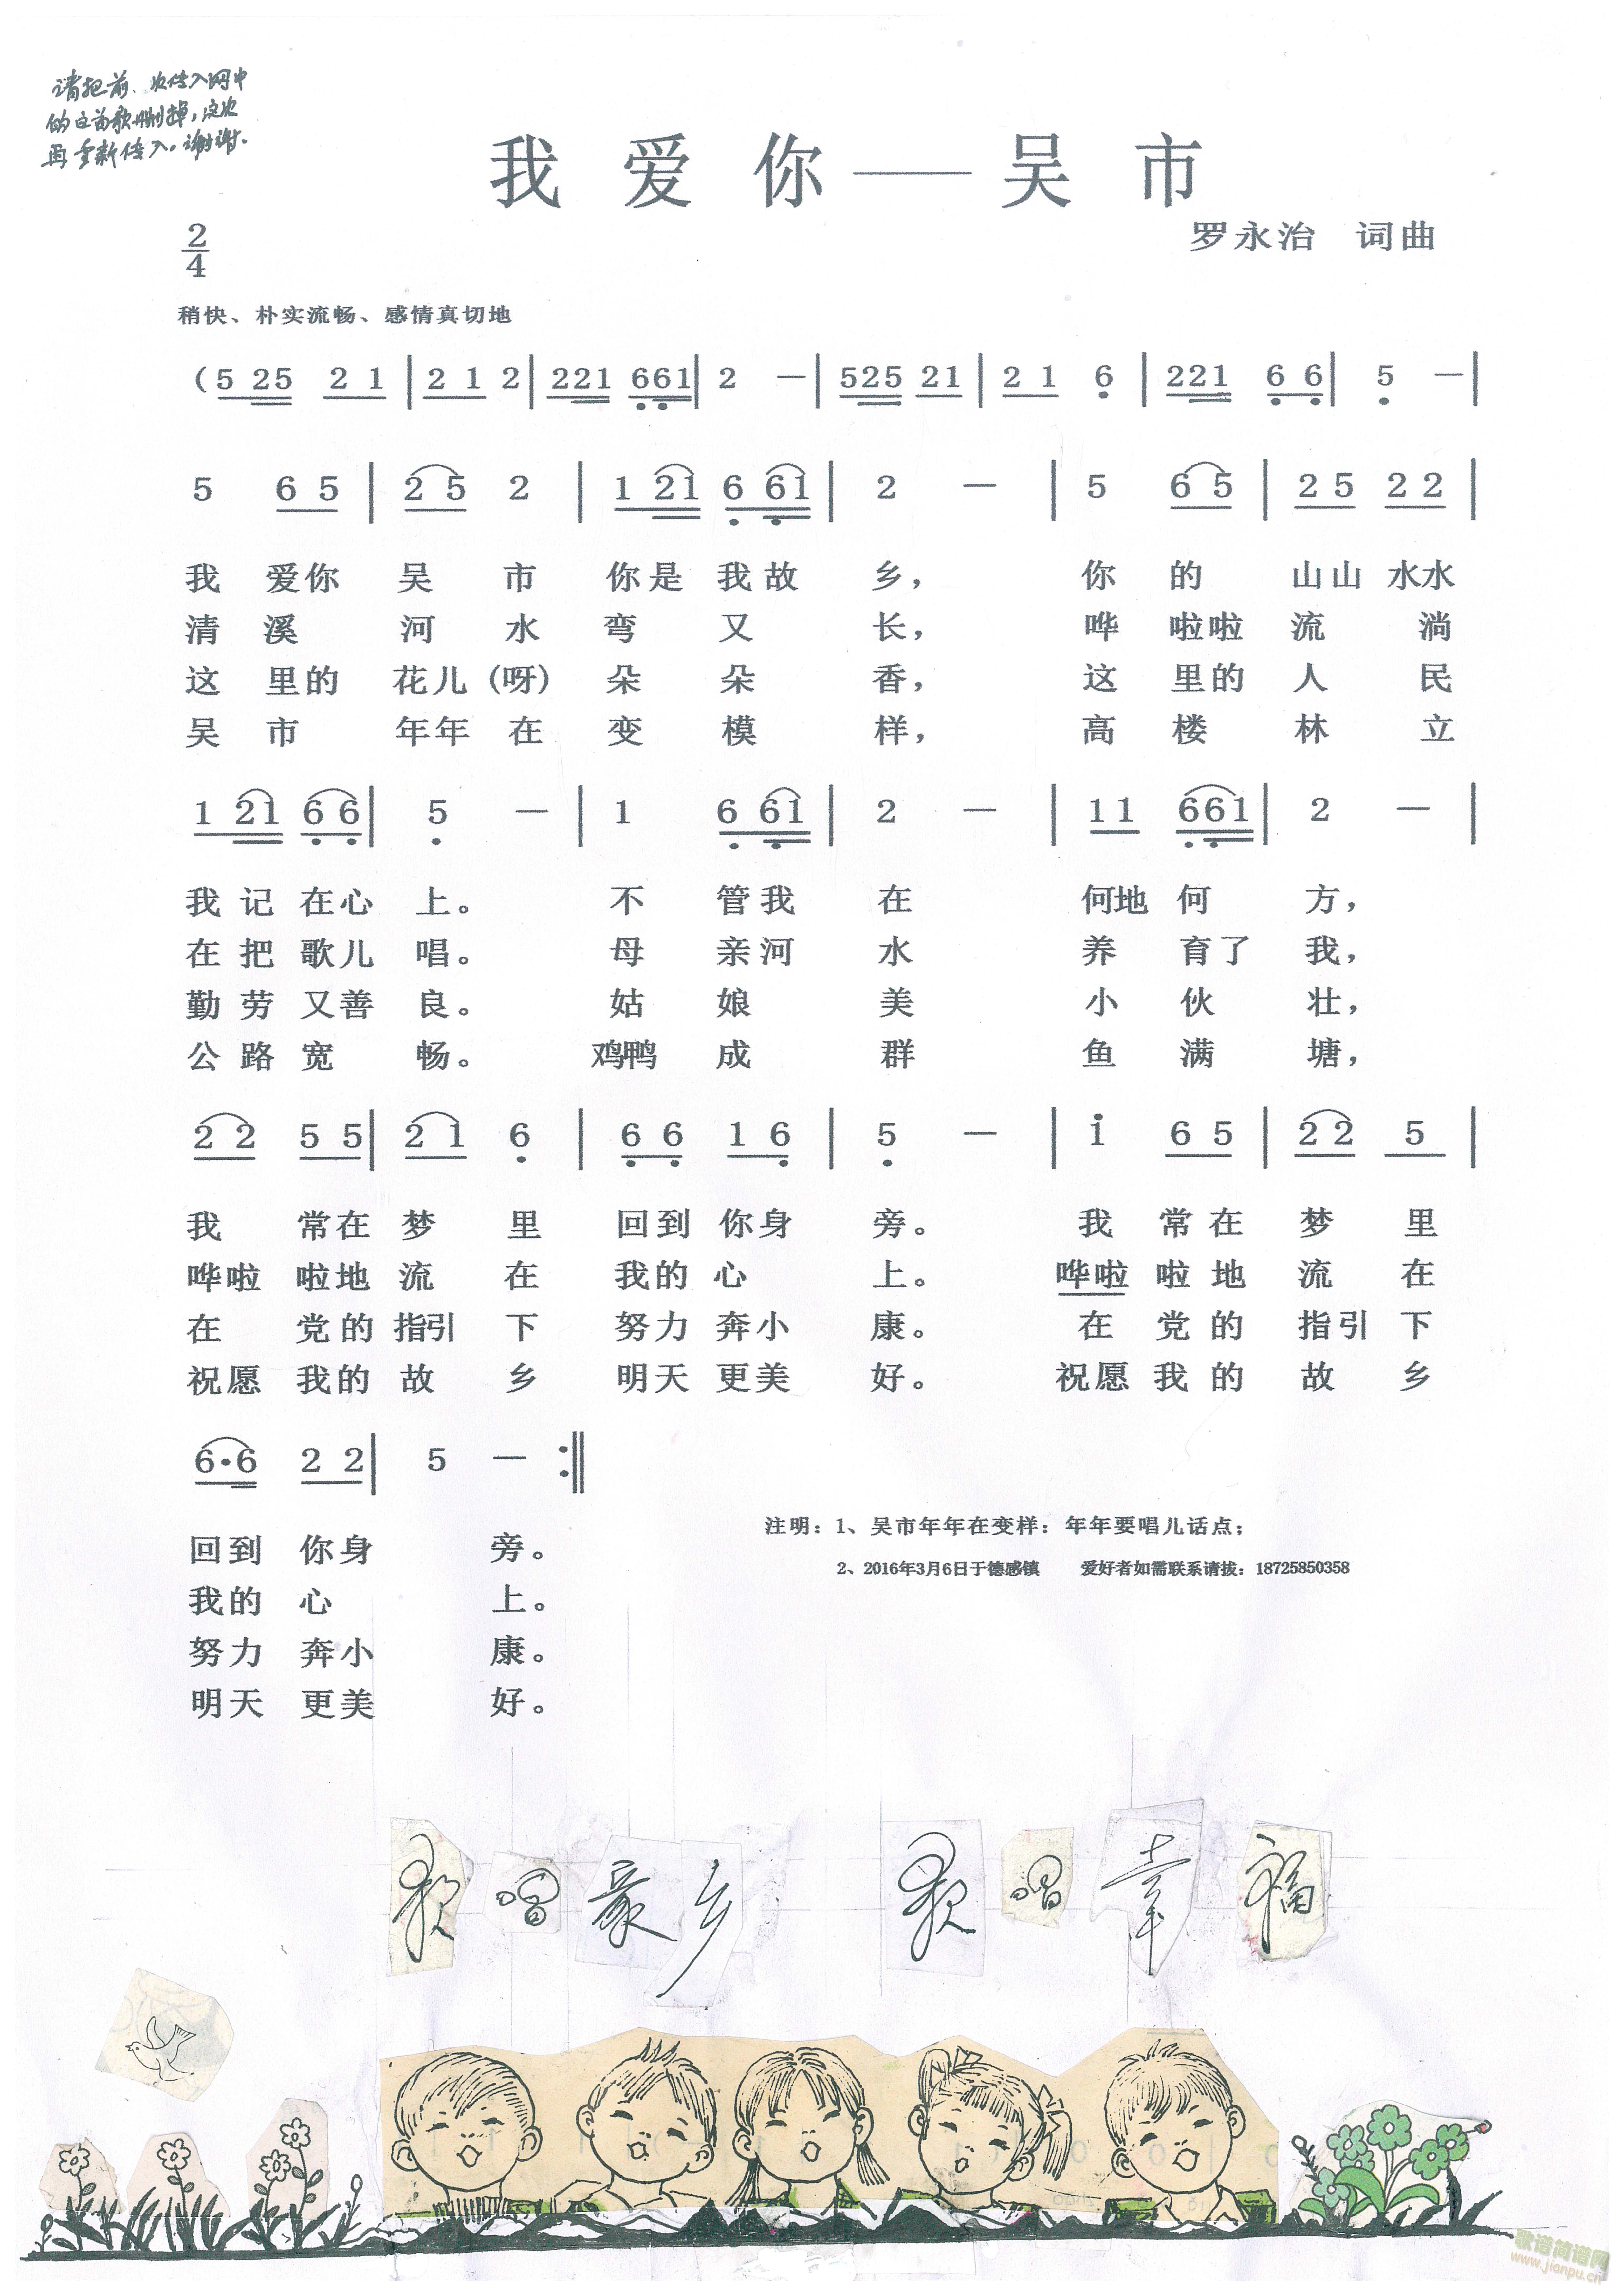 请把前一次传入网中
的这首歌删掉,这次
再重新传入。谢谢.
我爱你——吴市
2/4
罗永治 词曲
稍快、朴实流畅、感情真切地
(5 25 2 1 | 2 1 2 | 221 661 | 2 — | 525 21 | 2 1 6 | 221 6 6 | 5 — |
5 6 5 | 2 5 2 | 1 21 6 61 | 2 — | 5 6 5 | 2 5 2 2 |
我 爱你 吴 市 你是 我故 乡, 你 的 山山 水水
清 溪 河 水 弯 又 长, 哗 啦啦 流 淌
这 里的 花儿 (呀) 朵 朵 香, 这 里的 人 民
吴 市 年年 在 变 模 样, 高 楼 林 立
1 21 6 6 | 5 — | 1 6 61 | 2 — | 11 661 | 2 — |
我 记 在心 上。 不 管我 在 何地 何 方,
在 把 歌儿 唱。 母 亲河 水 养 育了 我,
勤 劳 又善 良。 姑 娘 美 小 伙 壮,
公 路 宽 畅。 鸡鸭 成 群 鱼 满 塘,
2 2 5 5 | 2 1 6 | 6 6 1 6 | 5 — | i 6 5 | 2 2 5 |
我 常在 梦 里 回到 你身 旁。 我 常 在 梦 里
哗啦 啦地 流 在 我的 心 上。 哗啦 啦 地 流 在
在 党的 指引 下 努力 奔小 康。 在 党 的 指引 下
祝愿 我的 故 乡 明天 更美 好。 祝愿 我 的 故 乡
6·6 2 2 | 5 — :‖
回到 你身 旁。
我的 心 上。
努力 奔小 康。
明天 更美 好。
注明: 1、吴市年年在变样: 年年要唱儿话点;
2、2016年3月6日于德感镇 爱好者如需联系请拔: 18725850358
歌唱家乡 歌唱幸福
歌谱简谱网
www.jianpu.cn